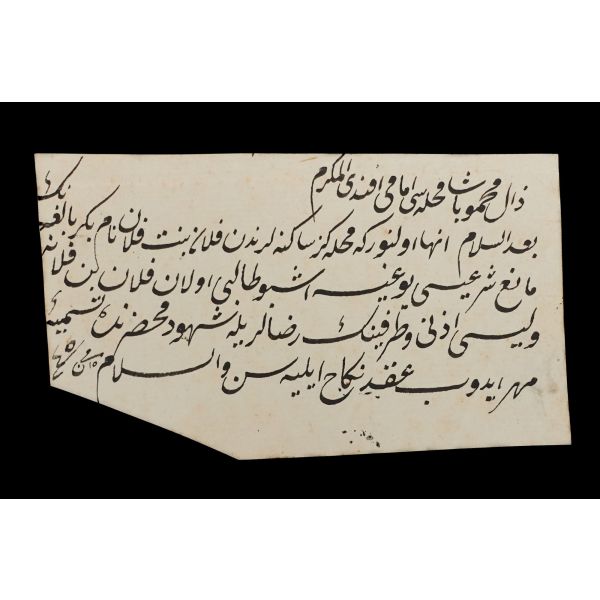 ذال محمود پاشا محله سی امامی افندی المکرم
بعد السلام انها اولنور که محله کز ساکنه لرندن فلانه بنت فلان نام بکر بالغه نک
مانع شرعیسی یوغیسه اشبو طالبی اولان فلان بن فلانه
ولیسی اذنی و طرفینک رضالریله شهود محضرنده تسمیه
مهر ایدوب عقد نکاح ایلیه سن والسلام